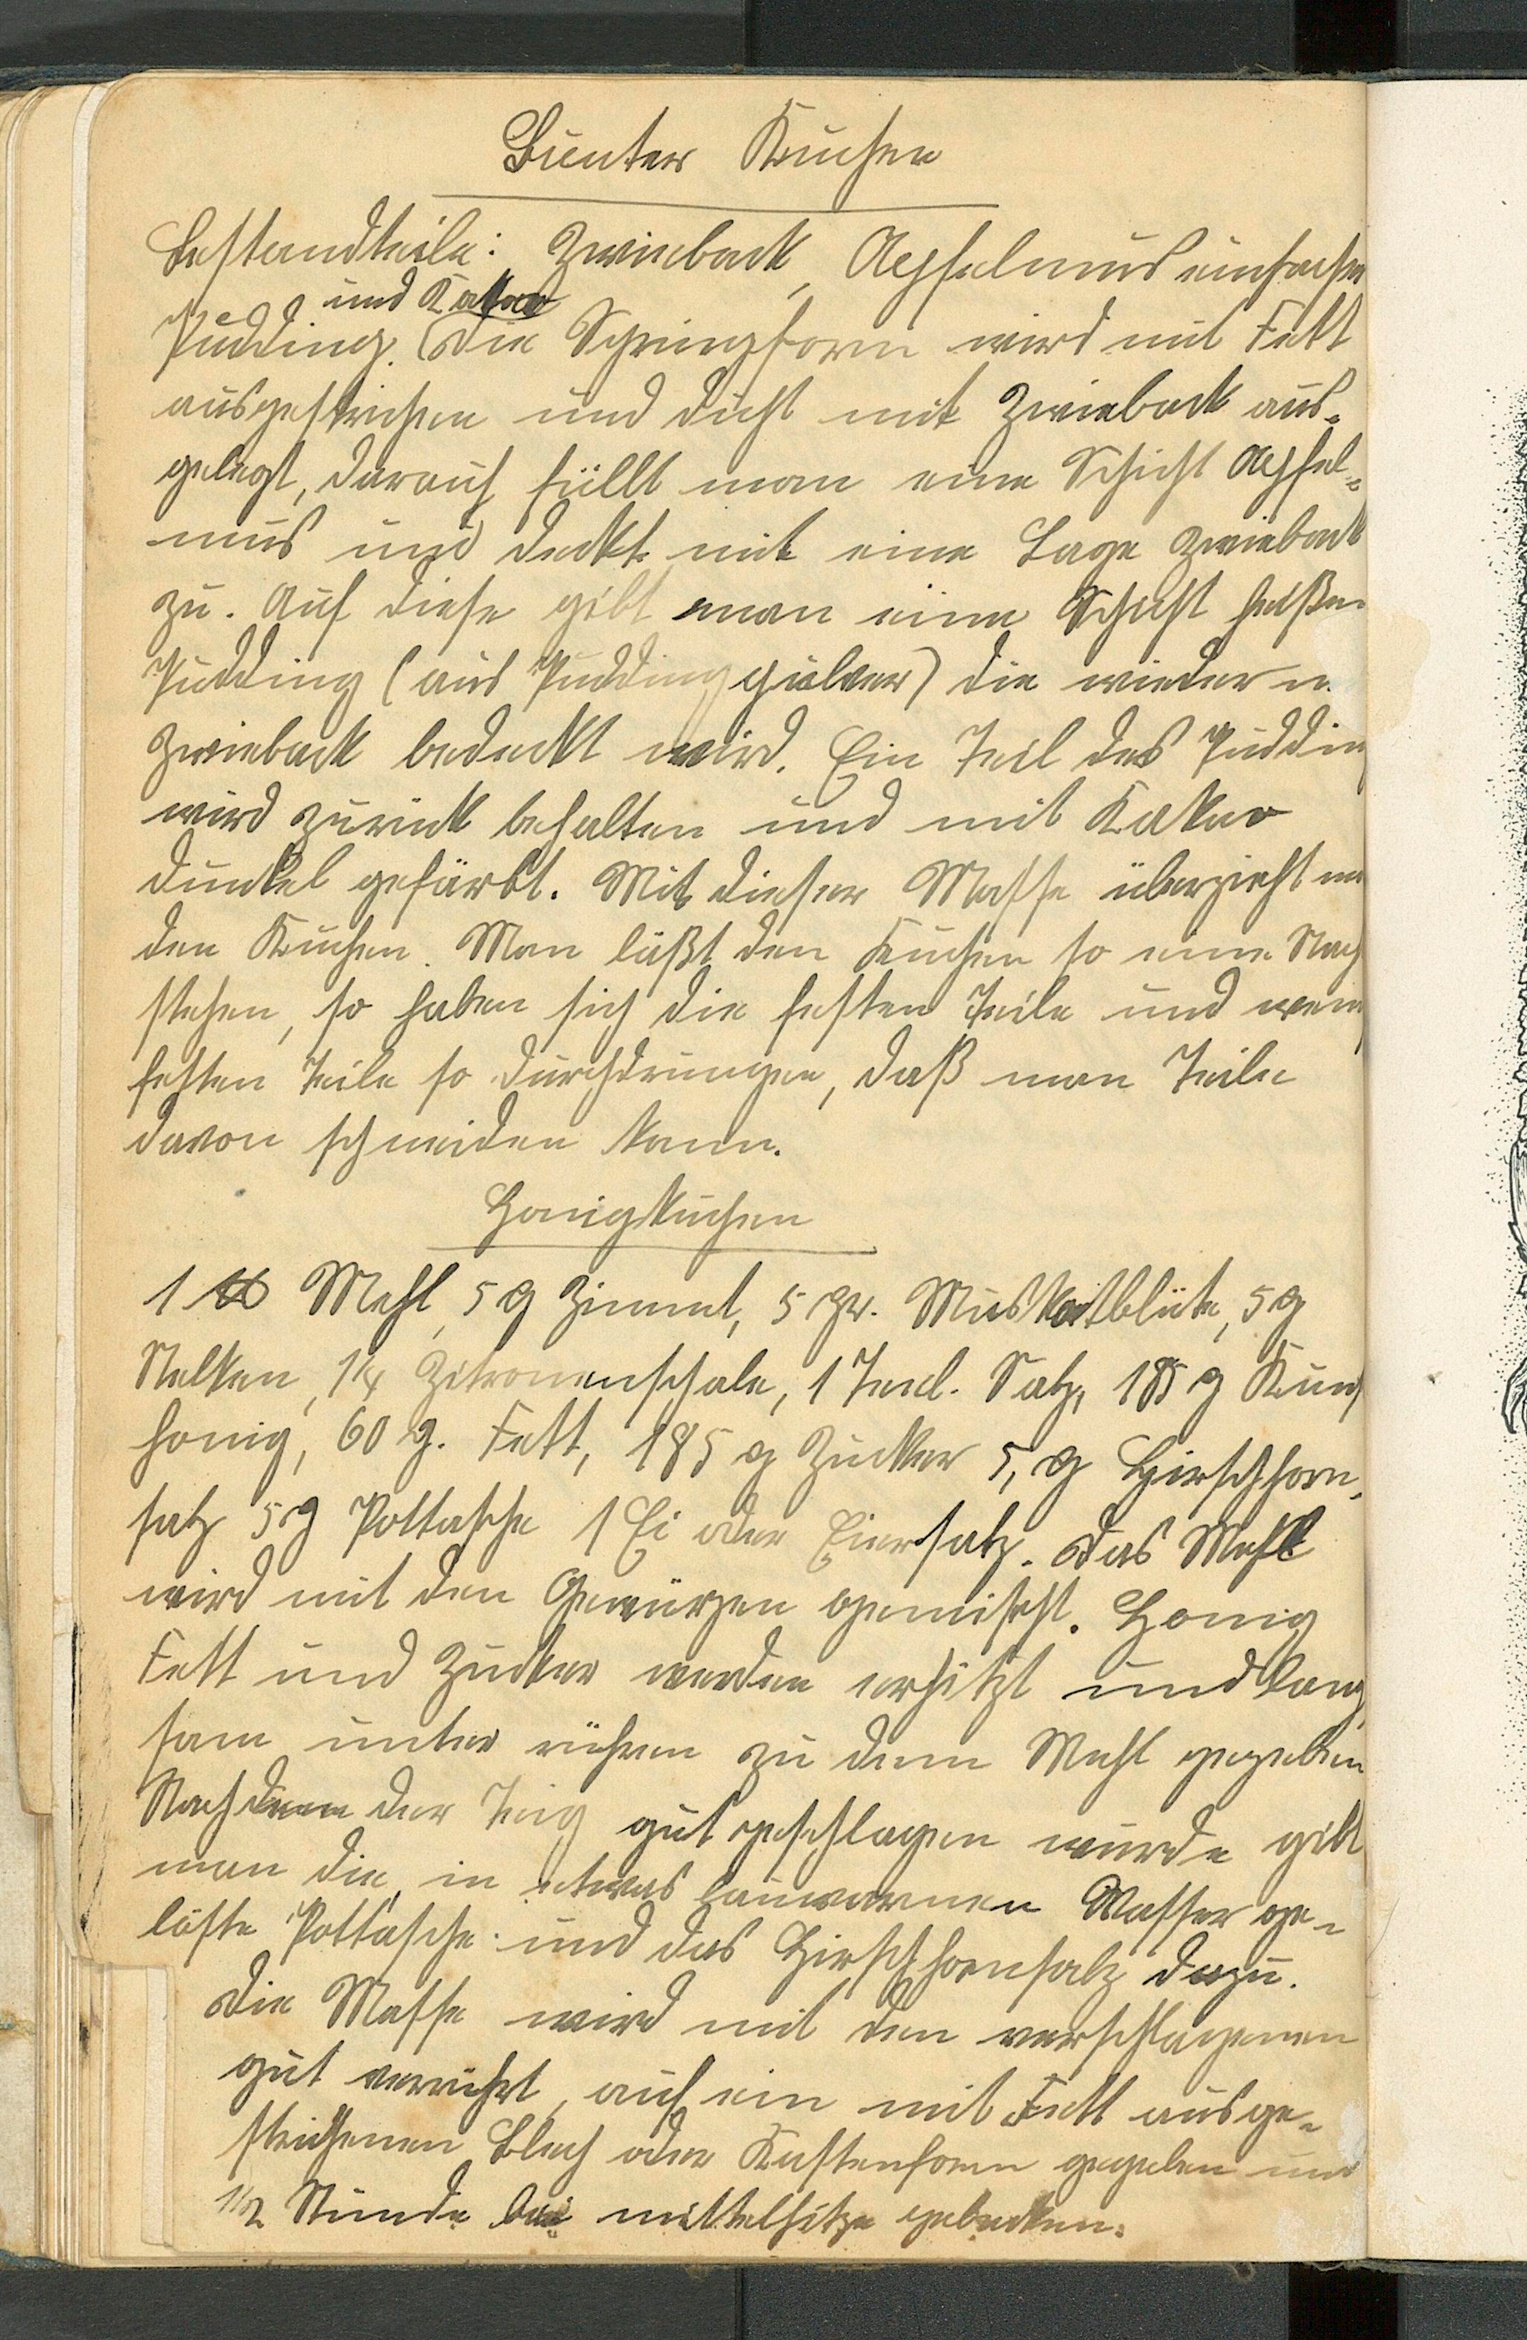 Bunter Kuchen
Bestandteile: Zwieback, Aepfelmus einfachen
und Kakao
Pudding. Die Springform wird mit Fett
ausgestrichen und dicht mit Zwieback aus-
gelegt, darauf füllt man eine Schicht Aepfel-
mus und deckt mit eine Lage Zwieback
zu. Auf diese gibt man eine Schicht heißen
Pudding (aus Puddingpulver) die wieder m.
Zwieback bedeckt wird. Ein Teil des Pudding
wird zurück behalten und mit Kakao
dunkel gefärbt. Mit dieser Masse überzieht man
den Kuchen. Man läßt den Kuchen so eine Nach
stehen, so haben sich die festen Teile und wenig
festen Teile so durchdrungen, daß man Teile
davon schneiden kann.
Honigkuchen
1 ℔ Mehl, 5 g Zimmt, 5 gr. Muskatblüte, 5 g
Nelken, 1/4 Zitronenschale, 1 Teel. Salz, 185 g Kunst
honig, 60 g. Fett, 185 g Zucker 5, g Hirschhorn-
salz 5 g Pottasche 1 Ei oder Eiersatz. Das Mehl
wird mit den Gewürzen gemischt. Honig
Fett und Zucker werden erhitzt und lang
sam unter rühren zu dem Mehl gegeben
Nachdem der Teig gut geschlagen wurde gibt
man die in etwas lauwarmen Wasser ge-
löste Pottasche und das Hirschhornsalz dazu.
Die Masse wird mit den verschlagenen
gut verrührt, auf ein mit Fett ausge-
strichenen Blech oder Kastenform gegeben und
1/2 Stunde bei mittelhitze gebacken.